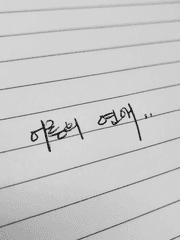 어른의 연애..